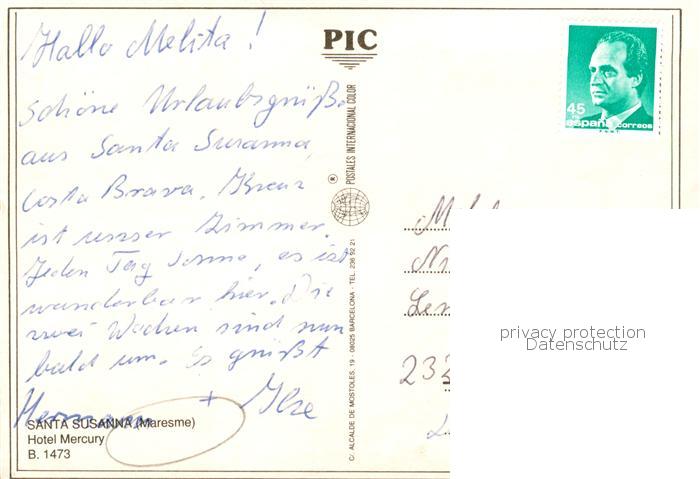 Hallo Melita!
Schöne Urlaubsgrüße
aus Santa Susanna,
Costa Brava. Kreuz
ist unser Zimmer.
Jeden Tag Sonne, es ist
wunderbar hier. Die
zwei Wochen sind nun
bald um. Es grüßt
Hermann + Ilse
SANTA SUSANNA (Maresme)
Hotel Mercury
B. 1473
PIC
POSTALES INTERNACIONAL COLOR
®
C/. ALCALDE DE MOSTOLES, 19 - 08025 BARCELONA - TEL. 236 92 21
45
PTA
españa correos
232
privacy protection
Datenschutz